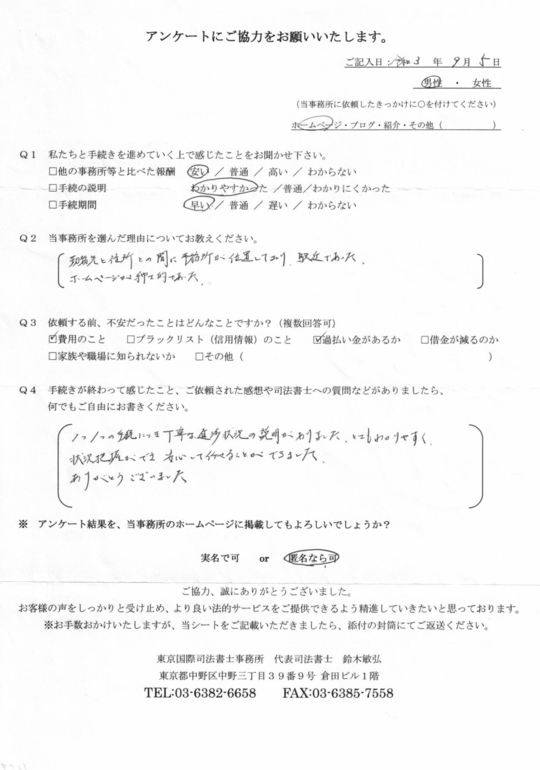 アンケートにご協力をお願いいたします。
ご記入日:令和3 年 9月 5日
男性 ・ 女性
(当事務所に依頼したきっかけに○を付けてください)
ホームページ・ブログ・紹介・その他( )
Q1 私たちと手続きを進めていく上で感じたことをお聞かせ下さい。
□他の事務所等と比べた報酬 安い / 普通 / 高い / わからない
□手続の説明 わかりやすかった /普通/わかりにくかった
□手続期間 早い / 普通 / 遅い / わからない
Q2 当事務所を選んだ理由についてお教えください。
勤務先と住所との間に事務所が位置しており、駅近であった。
ホームページが魅力的であった。
Q3 依頼する前、不安だったことはどんなことですか?(複数回答可)
☑費用のこと □ブラックリスト(信用情報)のこと ☑過払い金があるか □借金が減るのか
□家族や職場に知られないか □その他( )
Q4 手続きが終わって感じたこと、ご依頼された感想や司法書士への質問などがありましたら、
何でもご自由にお書きください。
1つ1つの手続につき丁寧な進捗状況の説明がありました。とてもわかりやすく、
状況把握ができ 安心して任せることができました。
ありがとうございました
※ アンケート結果を、当事務所のホームページに掲載してもよろしいでしょうか?
実名で可 or 匿名なら可
ご協力、誠にありがとうございました。
お客様の声をしっかりと受け止め、より良い法的サービスをご提供できるよう精進していきたいと思っております。
※お手数おかけいたしますが、当シートをご記載いただきましたら、添付の封筒にてご返送ください。
東京国際司法書士事務所 代表司法書士 鈴木敏弘
東京都中野区中野三丁目39番9号 倉田ビル1階
TEL:03-6382-6658 FAX:03-6385-7558